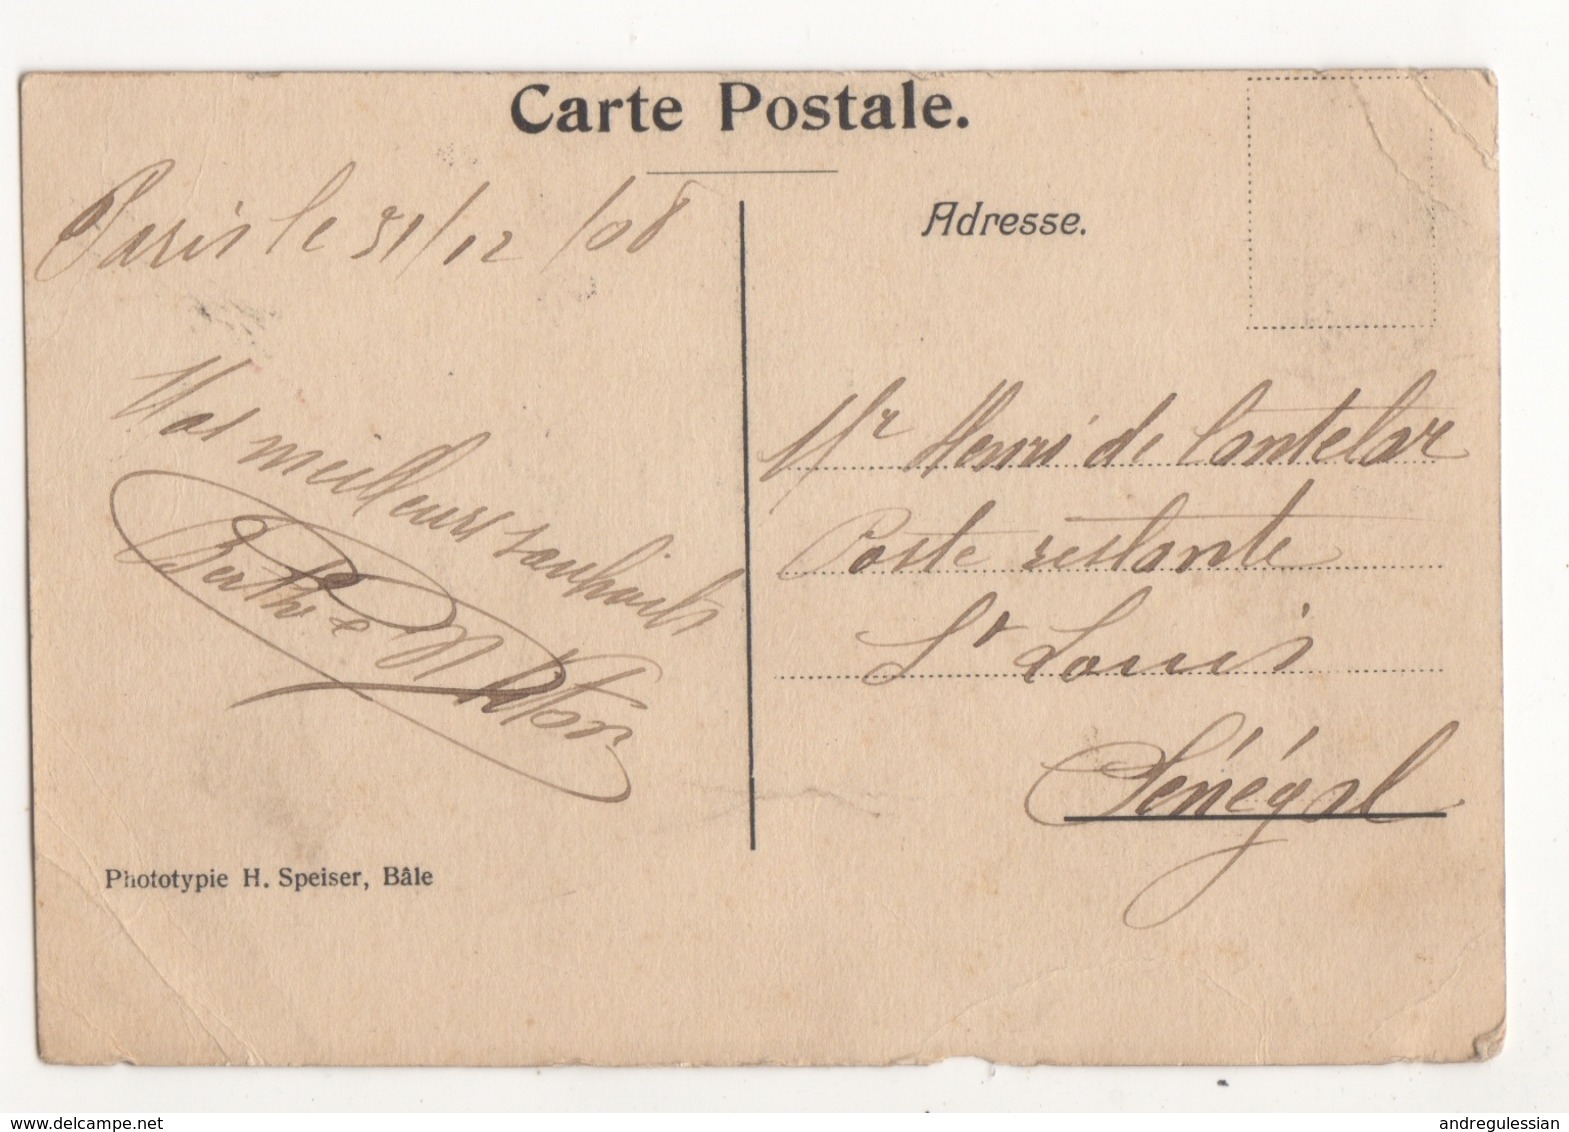 Carte Postale.
Paris le 31/12/08
Adresse.
Nos meilleurs souhaits
Berthe &
Mr Henri de Cantelar
Poste restante
St Louis
Sénégal
Phototypie H. Speiser, Bâle
www.delcampe.net
andregulessian